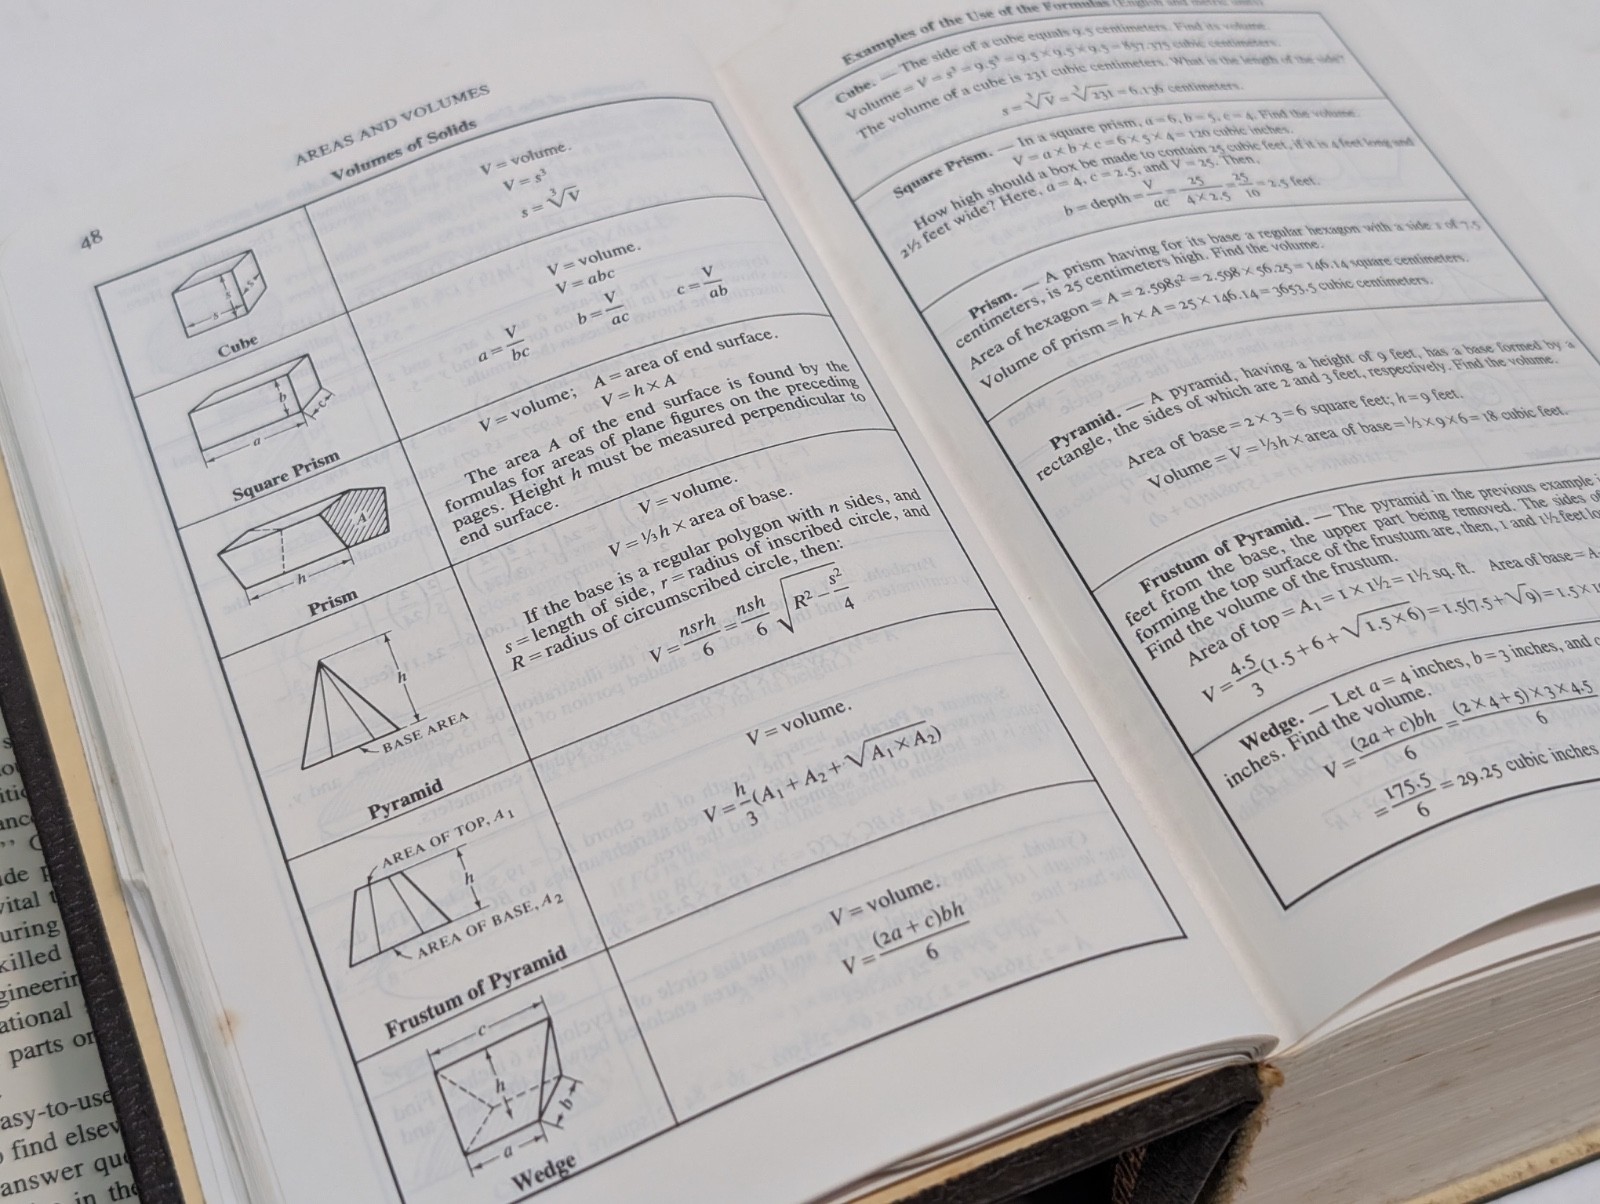 48
AREAS AND VOLUMES
Volumes of Solids
s
s
s
Cube
V = volume.
V = s³
s = ∛V
a
b
c
Square Prism
V = volume.
V = abc
a = V/bc b = V/ac c = V/ab
A
h
Prism
V = volume; A = area of end surface.
V = h × A
The area A of the end surface is found by the
formulas for areas of plane figures on the preceding
pages. Height h must be measured perpendicular to
end surface.
h
BASE AREA
Pyramid
V = volume.
V = ⅓h × area of base.
If the base is a regular polygon with n sides, and
s = length of side, r = radius of inscribed circle, and
R = radius of circumscribed circle, then:
V = nsrh/6 = nsh/6 √(R² − s²/4)
AREA OF TOP, A₁
h
AREA OF BASE, A₂
Frustum of Pyramid
V = volume.
V = h/3 (A₁ + A₂ + √(A₁ × A₂))
c
h
b
a
Wedge
V = volume.
V = (2a + c)bh/6
Examples of the Use of the Formulas (English and metric units)
Cube. — The side of a cube equals 9.5 centimeters. Find its volume.
Volume = V = s³ = 9.5³ = 9.5 × 9.5 × 9.5 = 857.375 cubic centimeters.
The volume of a cube is 231 cubic centimeters. What is the length of the side?
s = ∛V = ∛231 = 6.136 centimeters.
Square Prism. — In a square prism, a = 6, b = 5, c = 4. Find the volume.
V = a × b × c = 6 × 5 × 4 = 120 cubic inches.
How high should a box be made to contain 25 cubic feet, if it is 4 feet long and
2½ feet wide? Here, a = 4, c = 2.5, and V = 25. Then,
b = depth = V/ac = 25/4 × 2.5 = 25/10 = 2.5 feet.
Prism. — A prism having for its base a regular hexagon with a side s of 7.5
centimeters, is 25 centimeters high. Find the volume.
Area of hexagon = A = 2.598s² = 2.598 × 56.25 = 146.14 square centimeters.
Volume of prism = h × A = 25 × 146.14 = 3653.5 cubic centimeters.
Pyramid. — A pyramid, having a height of 9 feet, has a base formed by a
rectangle, the sides of which are 2 and 3 feet, respectively. Find the volume.
Area of base = 2 × 3 = 6 square feet; h = 9 feet.
Volume = V = ⅓h × area of base = ⅓ × 9 × 6 = 18 cubic feet.
Frustum of Pyramid. — The pyramid in the previous example
feet from the base, the upper part being removed. The sides of
forming the top surface of the frustum are, then, 1 and 1½ feet
Find the volume of the frustum.
Area of top = A₁ = 1 × 1½ = 1½ sq. ft. Area of base = A
V = 4.5/3 (1.5 + 6 + √(1.5 × 6)) = 1.5(7.5 + √9) = 1.5 ×
Wedge. — Let a = 4 inches, b = 3 inches, and
inches. Find the volume.
V = (2a + c)bh/6 = (2 × 4 + 5) × 3 × 4.5/6
= 175.5/6 = 29.25 cubic inches
uring
killed
ational
parts or
asy-to-use
find elsew
answer que
in the